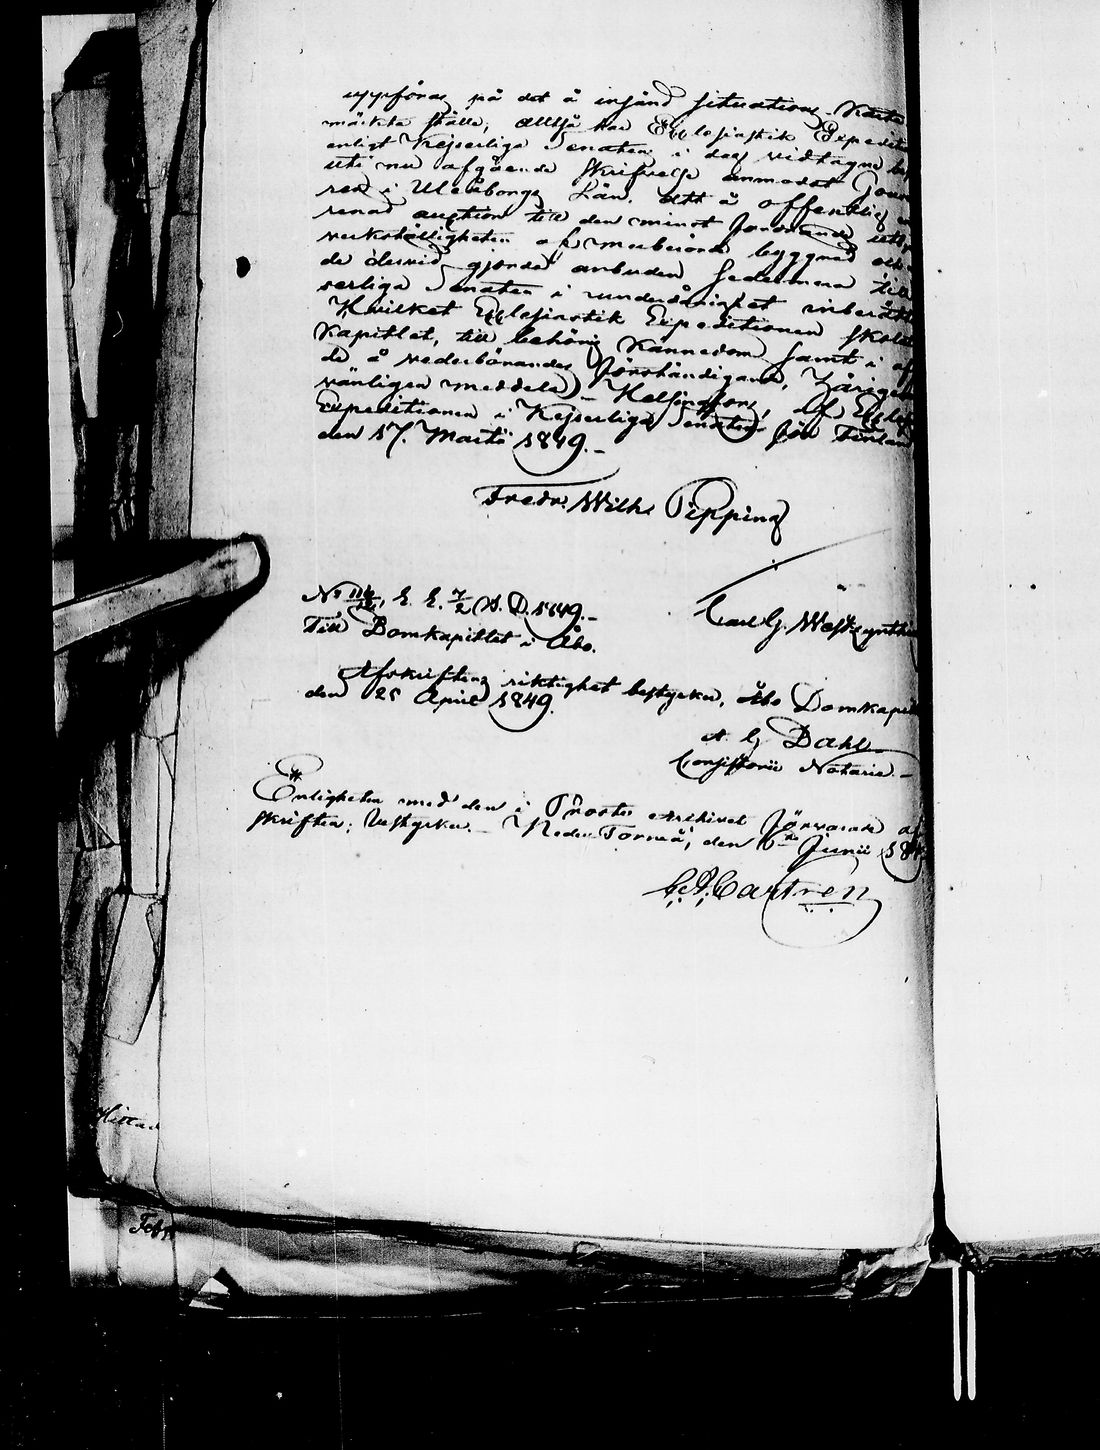 uppföras på det å insänd Situations Karta
märkta ställe; alltså har Ecclesiastik Expedit
enligt Kejserliga Senatens i dag vidtagne be
uti nu afgående skrifvelse anmodat Gouv
ren i Uleåborgs Län, att å offentlig
renad auction till den minst fordrande
verkställigheten af merberörde byggnad
de dervid gjorda anbuden sedermera till
serliga Senaten i underdånighet inberätt
Hvilket Ecclesiastik Expeditionen skolat
Kapitlet, till behörig kännedom samt i af
de å vederbörandes förständigande,
vänligen meddela. Helsingfors, af Eccles
Expeditionen i Kejserliga Senaten för Finland
den 17. Martii 1849.
Fredr. Wilh. Pipping
Carl G. Wests
N:o, E. E. 7/2 A. D. 1849.
Till Domkapitlet i Åbo.
Afskriftens riktighet bestyrker, Åbo Domkapit
den 25 April 1849.
A. G. Dahl
Consistorii Notarie.
Enligheten med den i Prosts Archivet förvarade af
skriften; bestyrker. Neder Torneå, den 6te Junii 184
C. A. Castrén
Hittad
Feb